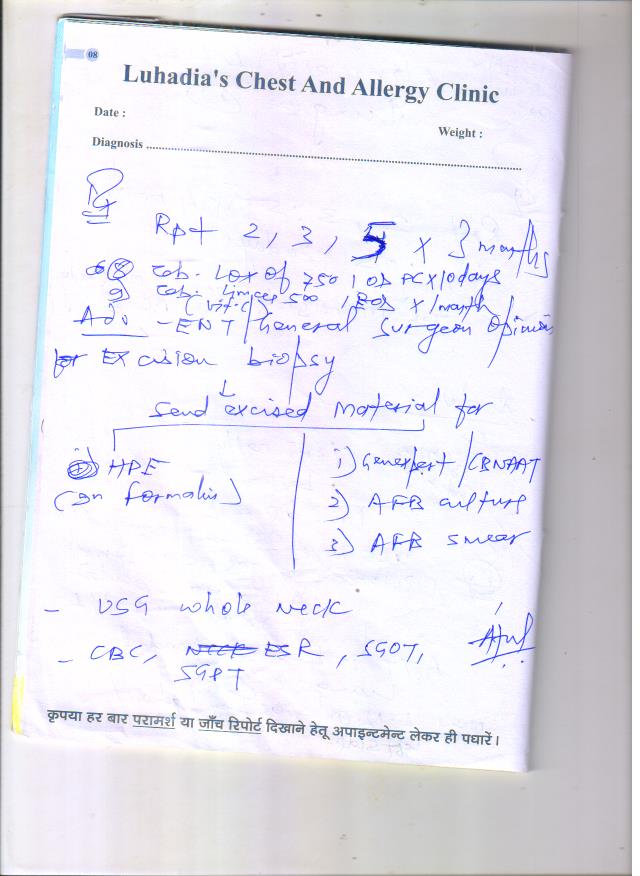 08
Luhadia's Chest And Allergy Clinic
Date :
Weight :
Diagnosis
Rx
Rpt 2, 3, 5 x 3 months
8 Tab. Lox of 750 1 OD PC x 10 days
9) Tab. Limcee 500 1 x 1 month
(Vit-C)
Adv - ENT / General Surgeon Opinion
for Excision biopsy
↓
Send excised material for
1) HPE
(In formalin)
1) Genexpert / CBNAAT
2) AFB culture
3) AFB smear
- USG whole Neck
- CBC, ESR, SGOT,
SGPT
कृपया हर बार परामर्श या जाँच रिपोर्ट दिखाने हेतू अपाइन्टमेन्ट लेकर ही पधारें।